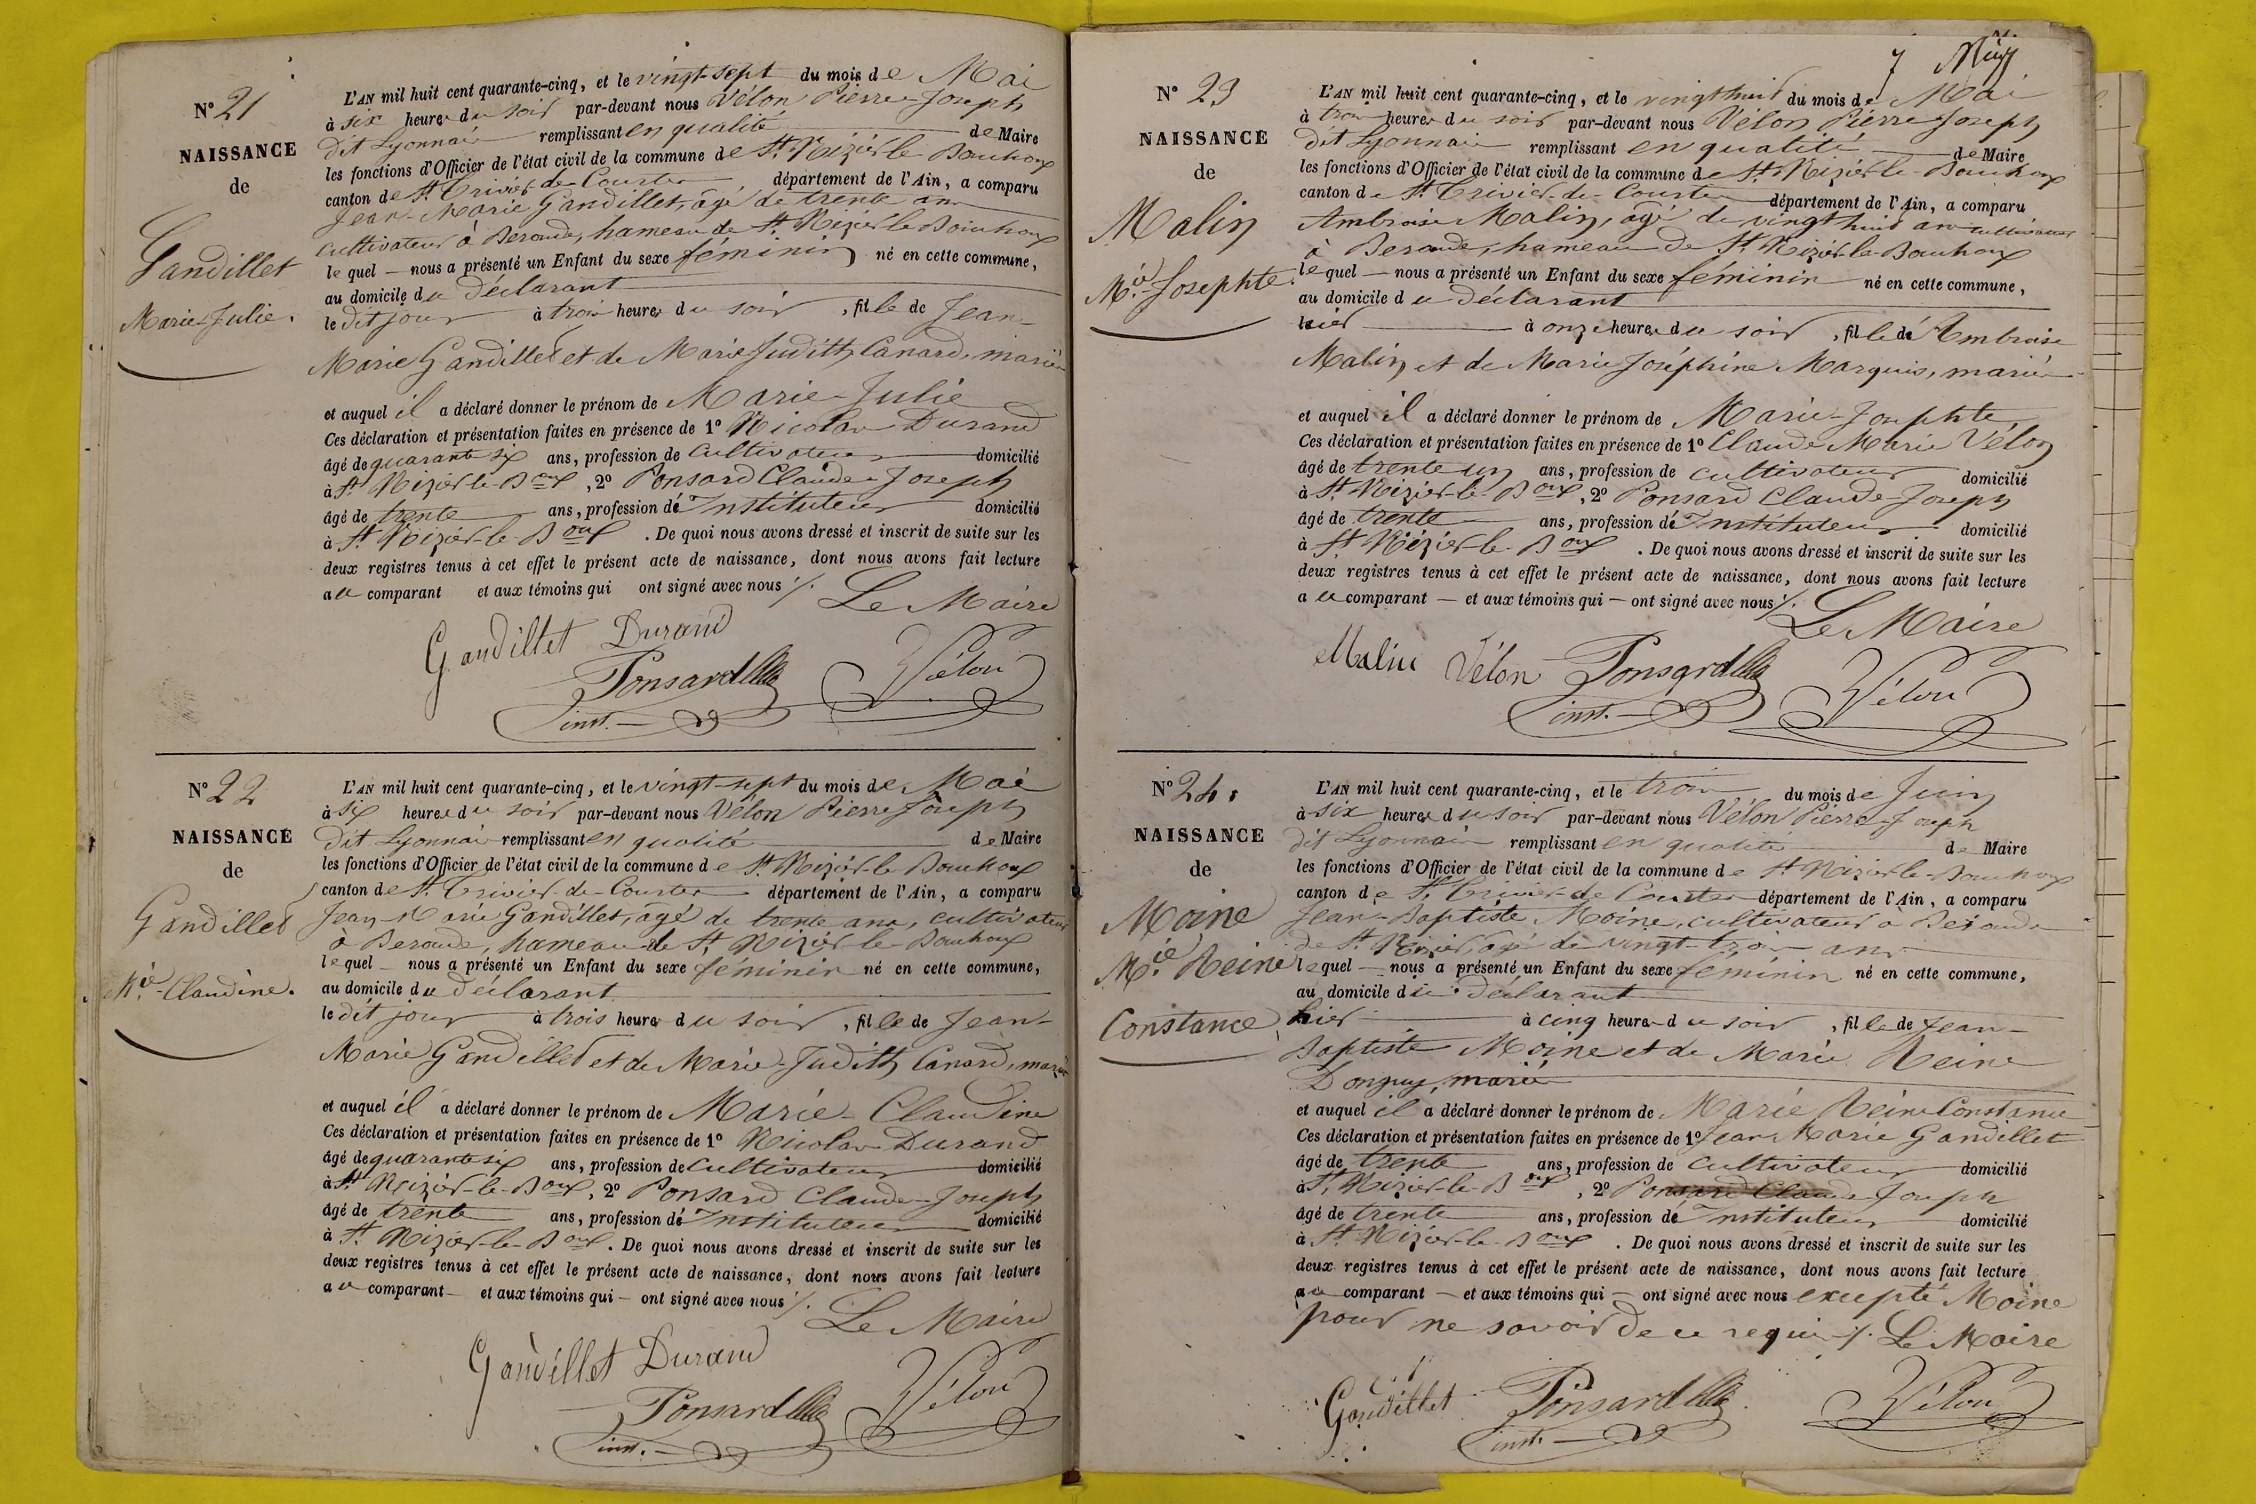 N° 21
NAISSANCE
de
Gandillet
Marie-Julie.
L'AN mil huit cent quarante-cinq, et le vingt-sept du mois de Mai
à six heures du soir par-devant nous Vélon Pierre-Joseph
dit Lyonnais remplissant en qualité de Maire
les fonctions d'Officier de l'état civil de la commune de St. Nizier-le-Bouchoux
canton de St. Trivier-de-Courtes département de l'Ain, a comparu
Jean-Marie Gandillet, âgé de trente ans
cultivateur à Beraude, hameau de St. Nizier-le-Bouchoux
lequel — nous a présenté un Enfant du sexe féminin né en cette commune,
au domicile du déclarant
le dit jour à trois heures du soir, fille de Jean-
Marie Gandillet et de Marie Judith Canard, mariés
et auquel il a déclaré donner le prénom de Marie-Julie
Ces déclaration et présentation faites en présence de 1° Nicolas Durand
âgé de quarante six ans, profession de Cultivateur domicilié
à St. Nizier-le-Boux, 2° Ponsard Claude-Joseph
âgé de trente ans, profession de Instituteur domicilié
à St. Nizier-le-Boux. De quoi nous avons dressé et inscrit de suite sur les
deux registres tenus à cet effet le présent acte de naissance, dont nous avons fait lecture
au comparant et aux témoins qui ont signé avec nous ./. Le Maire
Gandillet Durand
Ponsard Vélon
inst.
N° 22
NAISSANCE
de
Gandillet
Mie-Claudine.
L'AN mil huit cent quarante-cinq, et le vingt-sept du mois de Mai
à six heures du soir par-devant nous Vélon Pierre Joseph
dit Lyonnais remplissant en qualité de Maire
les fonctions d'Officier de l'état civil de la commune de St. Nizier-le-Bouchoux
canton de St. Trivier-de-Courtes département de l'Ain, a comparu
Jean-Marie Gandillet, âgé de trente ans, cultivateur
à Beraude, hameau de St. Nizier-le-Bouchoux
lequel — nous a présenté un Enfant du sexe féminin né en cette commune,
au domicile du déclarant
le dit jour à trois heures du soir, fille de Jean-
Marie Gandillet et de Marie-Judith Canard, mariés
et auquel il a déclaré donner le prénom de Marie-Claudine
Ces déclaration et présentation faites en présence de 1° Nicolas Durand
âgé de quarante six ans, profession de Cultivateur domicilié
à St. Nizier-le-Boux, 2° Ponsard Claude-Joseph
âgé de trente ans, profession de Instituteur domicilié
à St. Nizier-le-Boux. De quoi nous avons dressé et inscrit de suite sur les
deux registres tenus à cet effet le présent acte de naissance, dont nous avons fait lecture
au comparant — et aux témoins qui — ont signé avec nous ./. Le Maire
Gandillet Durand
Ponsard Vélon
inst.
7
N° 23
NAISSANCE
de
Malin
Mie-Josephte.
L'AN mil huit cent quarante-cinq, et le vingt huit du mois de Mai
à trois heures du soir par-devant nous Vélon Pierre-Joseph
dit Lyonnais remplissant en qualité de Maire
les fonctions d'Officier de l'état civil de la commune de St. Nizier-le-Bouchoux
canton de St. Trivier-de-Courtes département de l'Ain, a comparu
Ambroise Malin, âgé de vingt huit ans cultivateur
à Beraude, hameau de St. Nizier-le-Bouchoux
lequel — nous a présenté un Enfant du sexe féminin né en cette commune,
au domicile du déclarant
hier à onze heures du soir, fille de Ambroise
Malin et de Marie Joséphine Marquis, mariés
et auquel il a déclaré donner le prénom de Marie-Josephte
Ces déclaration et présentation faites en présence de 1° Claude Marie Vélon
âgé de trente un ans, profession de cultivateur domicilié
à St. Nizier-le-Boux, 2° Ponsard Claude-Joseph
âgé de trente ans, profession de Instituteur domicilié
à St. Nizier-le-Boux. De quoi nous avons dressé et inscrit de suite sur les
deux registres tenus à cet effet le présent acte de naissance, dont nous avons fait lecture
au comparant — et aux témoins qui — ont signé avec nous ./. Le Maire
Malin Vélon Ponsard Vélon
inst.
N° 24.
NAISSANCE
de
Moine
Mie Reine
Constance
L'AN mil huit cent quarante-cinq, et le trois du mois de Juin
à six heures du soir par-devant nous Vélon Pierre-Joseph
dit Lyonnais remplissant en qualité de Maire
les fonctions d'Officier de l'état civil de la commune de St. Nizier-le-Bouchoux
canton de St. Trivier-de-Courtes département de l'Ain, a comparu
Jean-Baptiste Moine, cultivateur à Beraude
de St. Nizier, âgé de vingt-trois ans
lequel — nous a présenté un Enfant du sexe féminin né en cette commune,
au domicile du déclarant
hier à cinq heures du soir, fille de Jean-
Baptiste Moine et de Marie Reine
Donguy, mariés
et auquel il a déclaré donner le prénom de Marie Reine Constance
Ces déclaration et présentation faites en présence de 1° Jean Marie Gandillet
âgé de trente ans, profession de cultivateur domicilié
à St. Nizier-le-Boux, 2° Ponsard Claude-Joseph
âgé de trente ans, profession de Instituteur domicilié
à St. Nizier-le-Boux. De quoi nous avons dressé et inscrit de suite sur les
deux registres tenus à cet effet le présent acte de naissance, dont nous avons fait lecture
au comparant — et aux témoins qui — ont signé avec nous excepté Moine
pour ne savoir de ce requis ./. Le Maire
Gandillet Ponsard Vélon
inst.